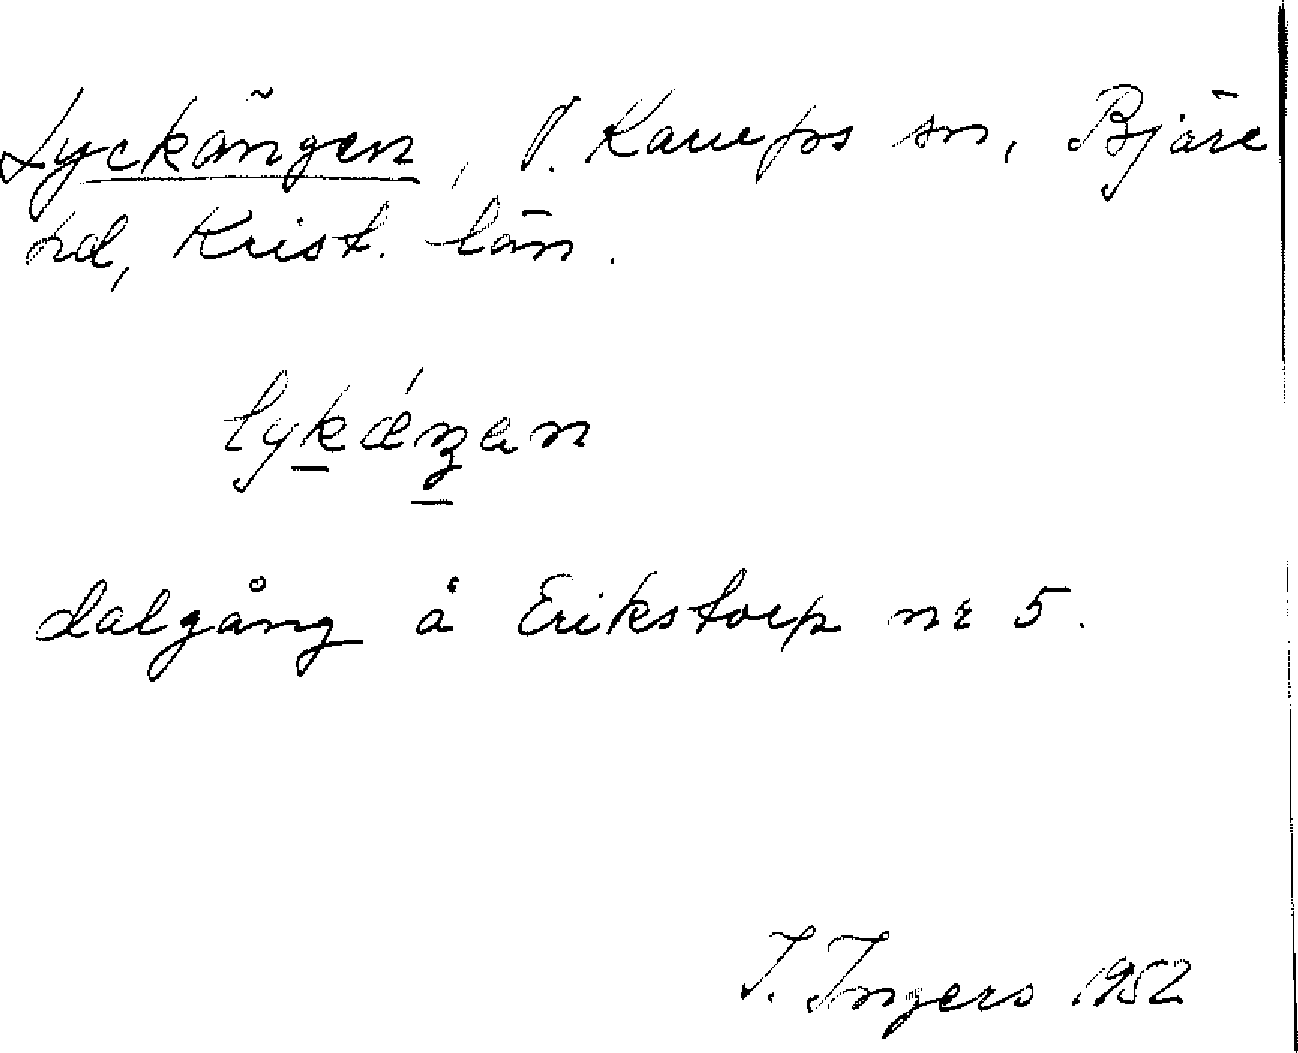 Lyckängen, V. Karups sn, Bjäre
hd, Krist. län.
lykǽŋen
dalgång å Erikstorp nr 5.
I. Ingers 1952